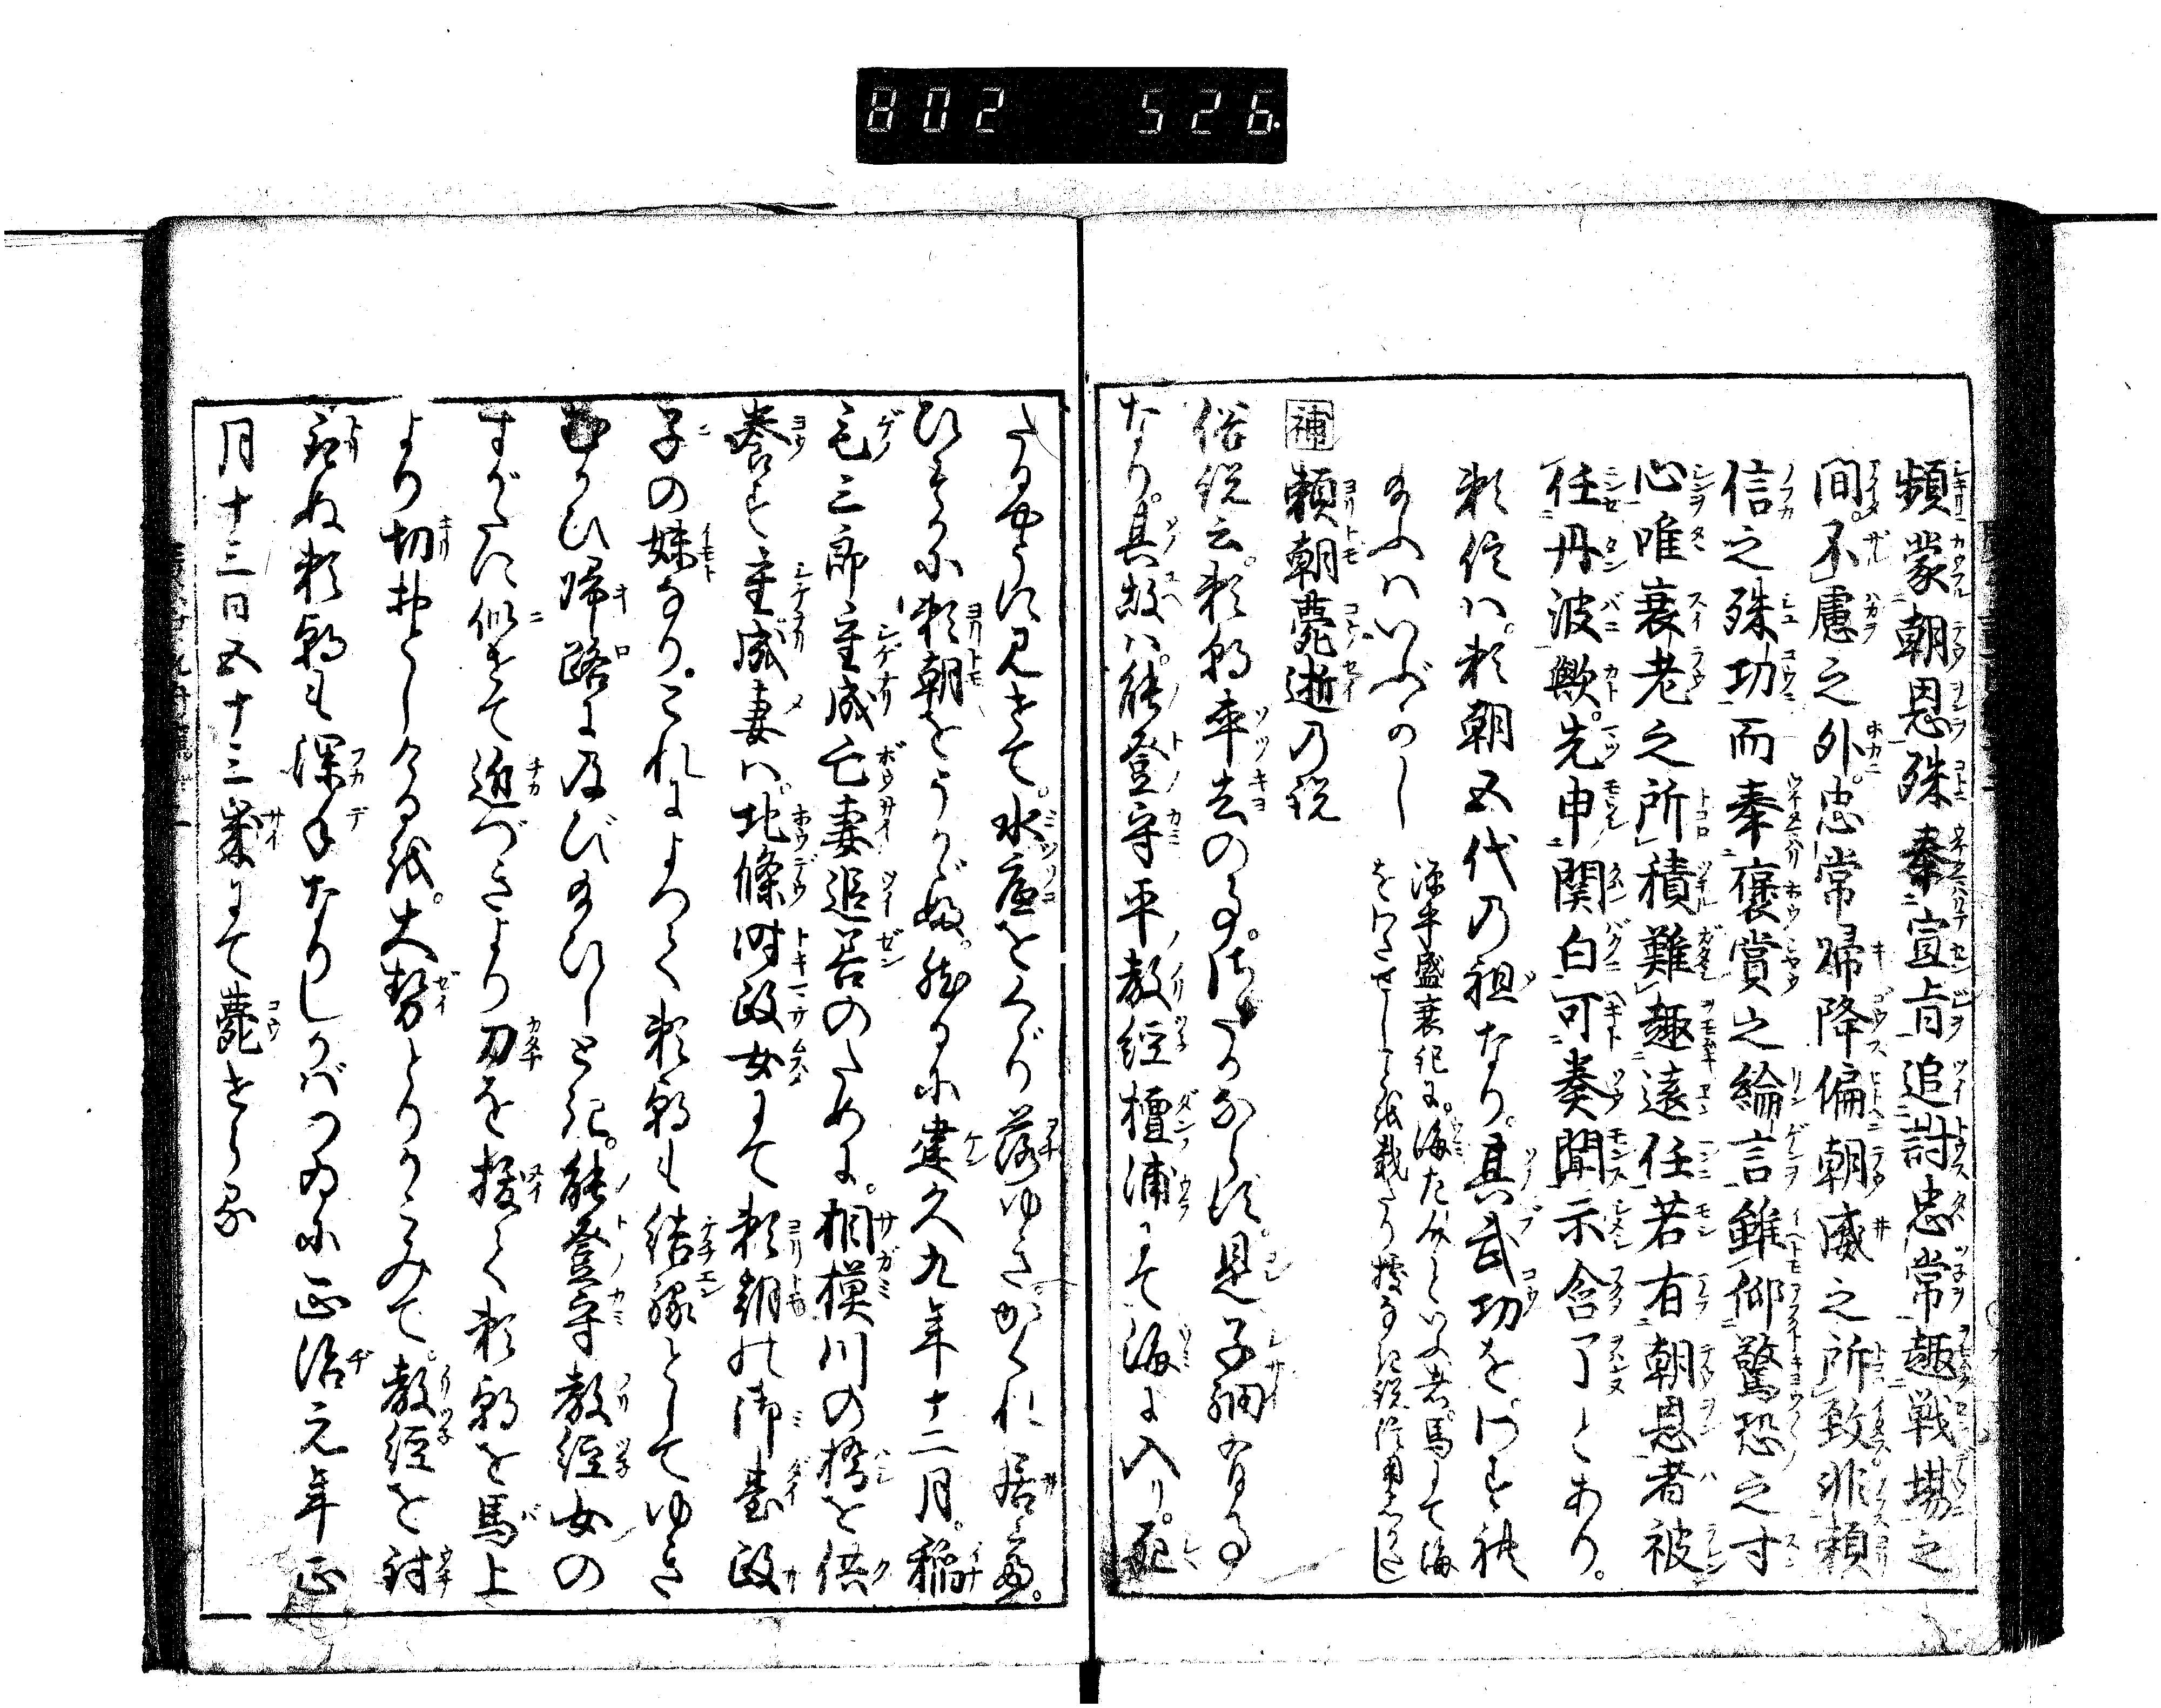 802 526.
頻蒙朝恩殊奉宣旨追討忠常趣戦場之
間。不慮之外。忠常帰降偏朝威之所致。非頼
信之殊功而奉褒賞之綸言雖仰驚恐之寸
心唯衰老之所積難趣遠任若有朝恩者被
任丹波歟。先申関白可奏聞示含了とあり。
頼信ハ。頼朝五代の祖なり。其武功を
給ふハいぶかし
源平盛衰記に。海
補 頼朝薨逝の説
俗説云。頼朝卒去の事。是子細有事
なり。其故ハ。能登守平教経檀浦にて海に入り。死
たるやうに見せて。水底をくゞり落ゆき。かくれ居家。
ひそかに頼朝をうかゞふ。然るに建久九年十二月。稲
毛三郎重成亡妻追善のために。相模川の橋を供
養す重成妻ハ。北條時政女にて頼朝の御臺政
子の妹なり。これによつて頼朝も結縁としてゆき
むかひ帰路に及び給ひしとき。能登守教経女の
すがたに似せて近づきより刀を抜て頼朝を馬上
より切おとしける故。大勢とりかこみて。教経を討
取ぬ頼朝も深手なりしかばつゐに正治元年正
月十三日五十三歳にて薨せらる